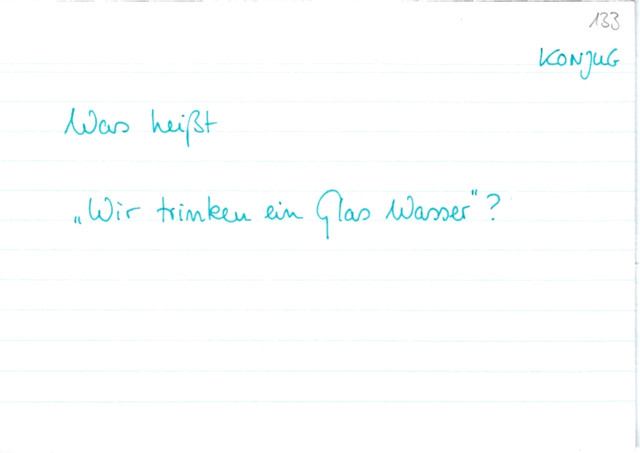 133
KONJUG
Was heißt
„Wir trinken ein Glas Wasser"?